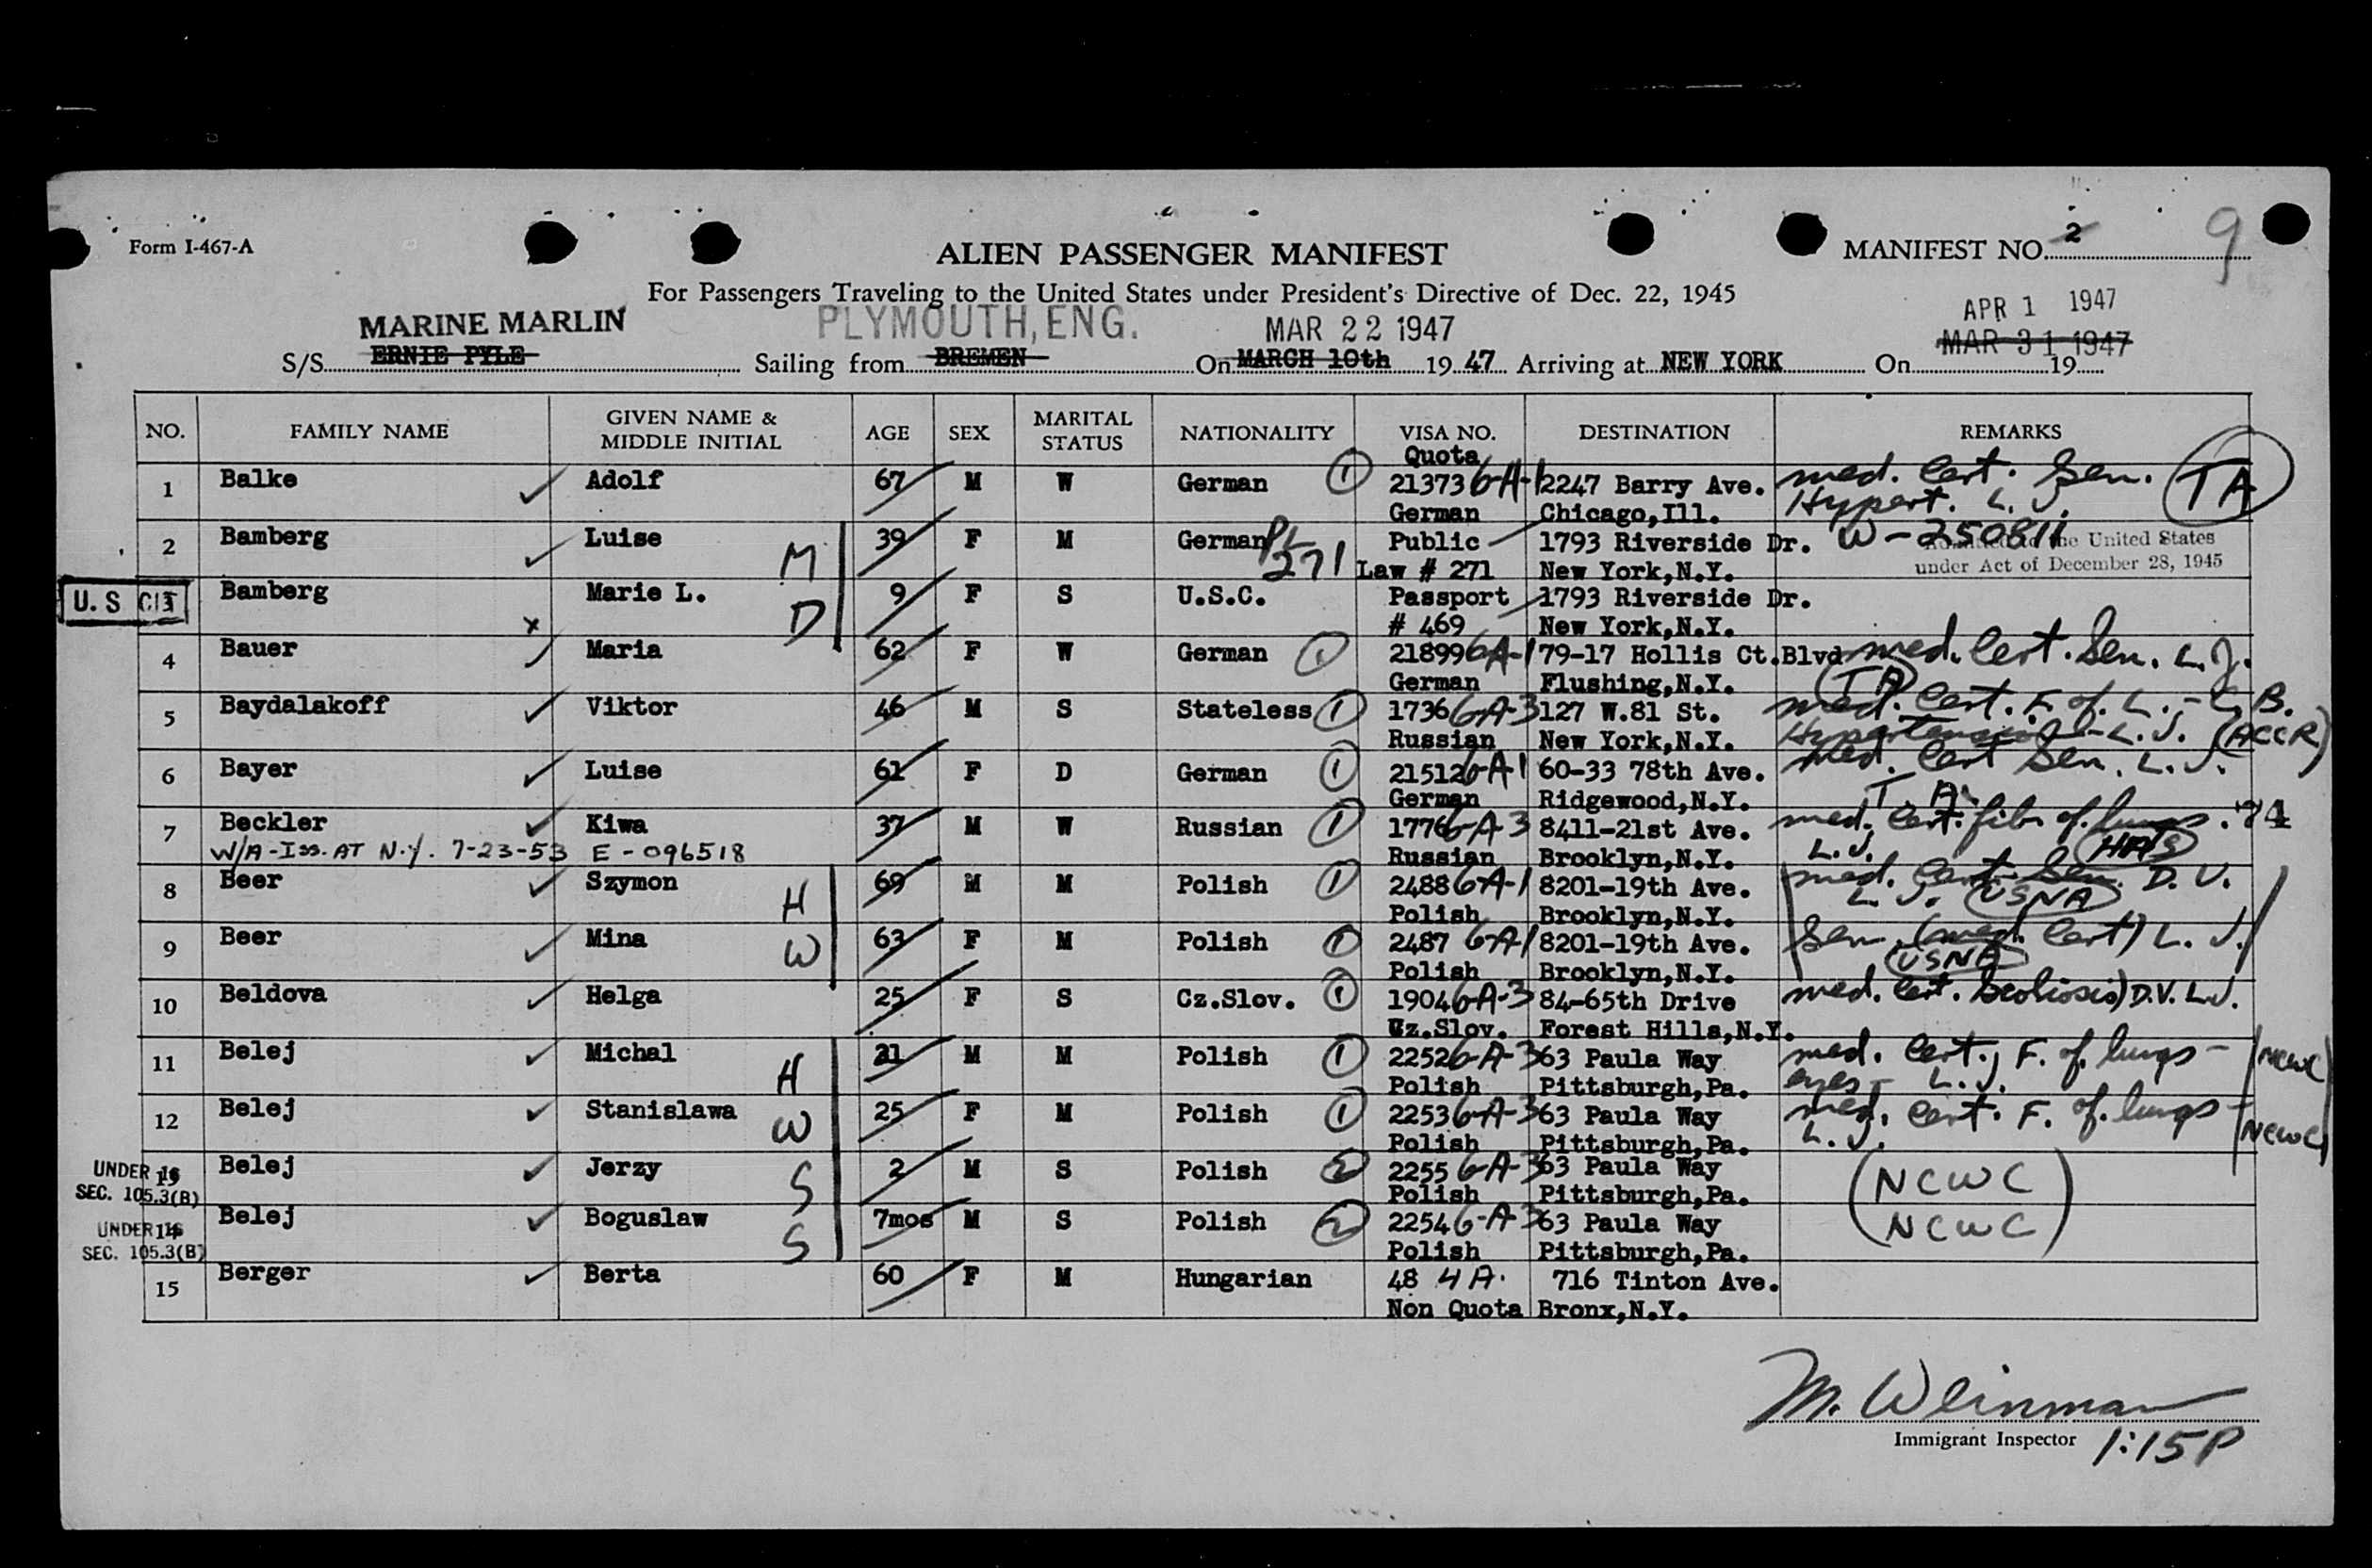 Form I-467-A
ALIEN PASSENGER MANIFEST
MANIFEST NO. 2
9
For Passengers Traveling to the United States under President's Directive of Dec. 22, 1945
MARINE MARLIN PLYMOUTH, ENG. MAR 22 1947 APR 1 1947
MAR 31 1947
S/S ERNIE PYLE Sailing from BREMEN On MARCH 10th 19 47 Arriving at NEW YORK On 19
NO. FAMILY NAME GIVEN NAME & MIDDLE INITIAL AGE SEX MARITAL STATUS NATIONALITY VISA NO. DESTINATION REMARKS
Quota
1 Balke Adolf 67 M W German 1 21373 6-A-1 2247 Barry Ave. med. Cert. Sen. TA
German Chicago,Ill. Hypert. L. J.
2 Bamberg Luise M 39 F M German PL 271 Public 1793 Riverside Dr. W-250811
Law # 271 New York,N.Y. the United States
under Act of December 28, 1945
U. S CIT Bamberg Marie L. D 9 F S U.S.C. Passport 1793 Riverside Dr.
# 469 New York,N.Y.
4 Bauer Maria 62 F W German 1 21899 6A-1 79-17 Hollis Ct.Blvd med. Cert. Sen. L. J.
German Flushing,N.Y. TA
5 Baydalakoff Viktor 46 M S Stateless 1 1736 6-A-3 127 W.81 St. med. Cert. F. of. L. - B.
Russian New York,N.Y. L. J. (ACCR)
6 Bayer Luise 61 F D German 1 21512 6-A-1 60-33 78th Ave. med. Cert Sen. L. J.
German Ridgewood,N.Y. T. A.
7 Beckler Kiwa 37 M W Russian 1 1776 6-A-3 8411-21st Ave. med. Cert. fib. of. lungs.
W/A-Iss. AT N.Y. 7-23-53 E-096518
Russian Brooklyn,N.Y. L. J. HIAS
8 Beer Szymon H 69 M M Polish 1 2488 6-A-1 8201-19th Ave. med. Cert. Sen. D. V.
Polish Brooklyn,N.Y. L. J. USNA
9 Beer Mina W 63 F M Polish 1 2487 6-A-1 8201-19th Ave. Sen. (med. Cert) L. J.
Polish Brooklyn,N.Y. USNA
10 Beldova Helga 25 F S Cz.Slov. 1 1904 6-A-3 84-65th Drive med. Cert. Scoliosis) D.V. L.J.
Cz.Slov. Forest Hills,N.Y.
11 Belej Michal H 31 M M Polish 1 2252 6-A-3 63 Paula Way med. Cert. F. of. lungs - (NCWC)
Polish Pittsburgh,Pa. eyes - L. J.
12 Belej Stanislawa W 25 F M Polish 1 2253 6-A-3 63 Paula Way med. Cert. F. of. lungs - (NCWC)
Polish Pittsburgh,Pa. L. J.
UNDER 16 13 Belej Jerzy S 2 M S Polish 2 2255 6-A-3 63 Paula Way (NCWC)
SEC. 105.3(B) Polish Pittsburgh,Pa.
UNDER 16 14 Belej Boguslaw S 7mos M S Polish 2 2254 6-A-3 63 Paula Way (NCWC)
SEC. 105.3(B) Polish Pittsburgh,Pa.
15 Berger Berta 60 F M Hungarian 48 4 A. 716 Tinton Ave.
Non Quota Bronx,N.Y.
M. Weinman
Immigrant Inspector 1:15P